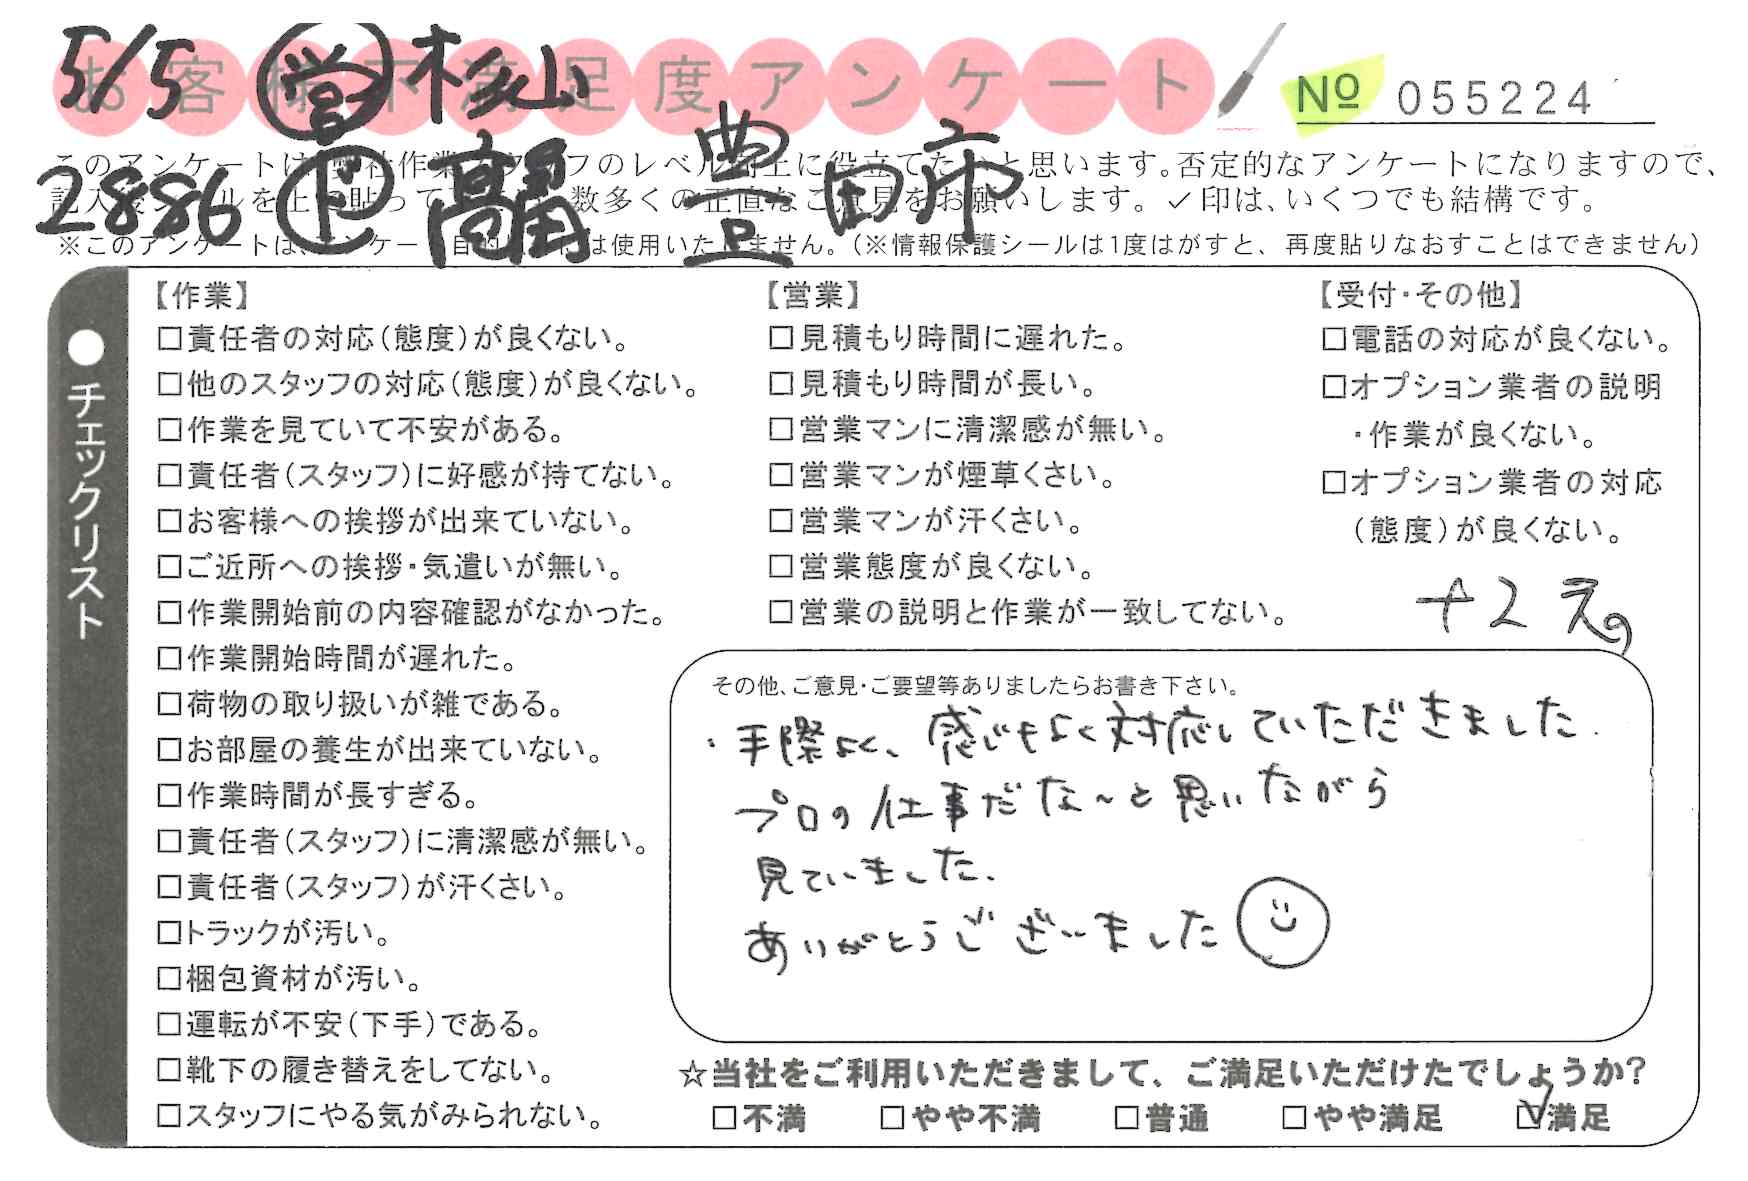 お客様不満足度アンケート
5/5 営 杉山
№ 055224
2886 ド 豊田市
このアンケートは、弊社作業スタッフのレベル向上に役立てたいと思います。否定的なアンケートになりますので、
記入後シールを上に貼って 数多くの正直なご意見をお願いします。✓印は、いくつでも結構です。
※このアンケートは、アンケート目的 には使用いたしません。(※情報保護シールは1度はがすと、再度貼りなおすことはできません)
●チェックリスト
【作業】
□責任者の対応(態度)が良くない。
□他のスタッフの対応(態度)が良くない。
□作業を見ていて不安がある。
□責任者(スタッフ)に好感が持てない。
□お客様への挨拶が出来ていない。
□ご近所への挨拶・気遣いが無い。
□作業開始前の内容確認がなかった。
□作業開始時間が遅れた。
□荷物の取り扱いが雑である。
□お部屋の養生が出来ていない。
□作業時間が長すぎる。
□責任者(スタッフ)に清潔感が無い。
□責任者(スタッフ)が汗くさい。
□トラックが汚い。
□梱包資材が汚い。
□運転が不安(下手)である。
□靴下の履き替えをしてない。
□スタッフにやる気がみられない。
【営業】
□見積もり時間に遅れた。
□見積もり時間が長い。
□営業マンに清潔感が無い。
□営業マンが煙草くさい。
□営業マンが汗くさい。
□営業態度が良くない。
□営業の説明と作業が一致してない。
【受付・その他】
□電話の対応が良くない。
□オプション業者の説明
・作業が良くない。
□オプション業者の対応
(態度)が良くない。
その他、ご意見・ご要望等ありましたらお書き下さい。
・手際よく、感じもよく対応していただきました.
プロの仕事だな〜と思いながら
見ていました.
ありがとうございました
☆当社をご利用いただきまして、ご満足いただけたでしょうか?
□不満 □やや不満 □普通 □やや満足 ☑満足